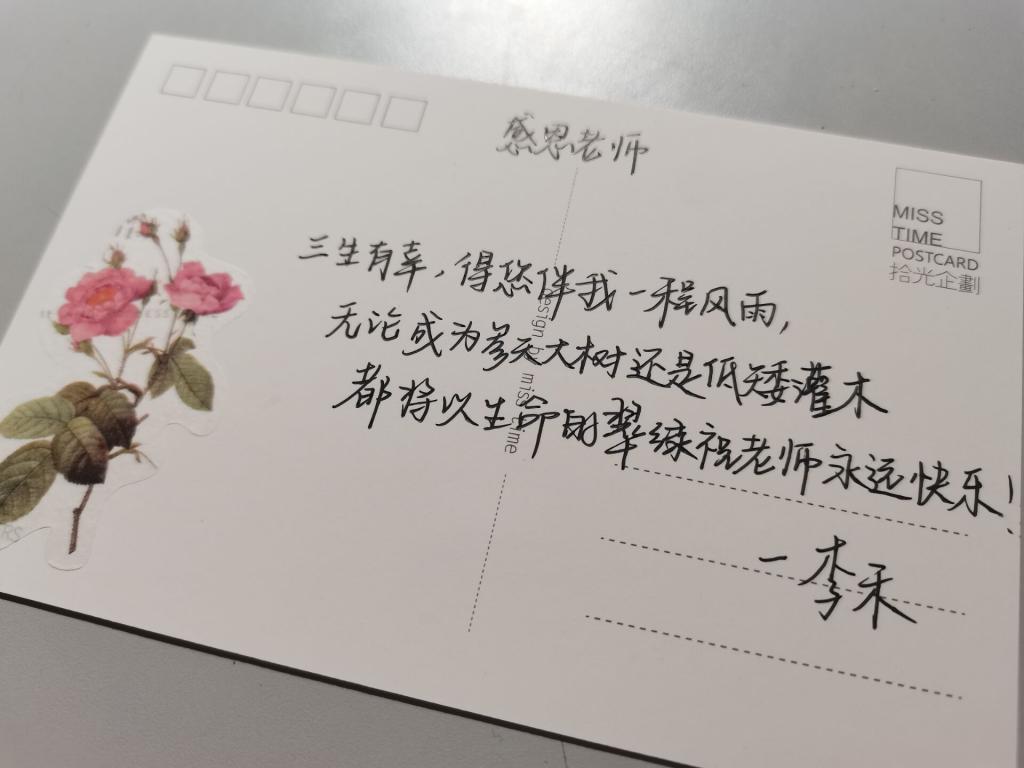 感恩老师
MISS
TIME
POSTCARD
拾光企劃
三生有幸，得您伴我一程风雨，
无论成为参天大树还是低矮灌木
都将以生命的翠绿祝老师永远快乐！
design by miss time
一李禾